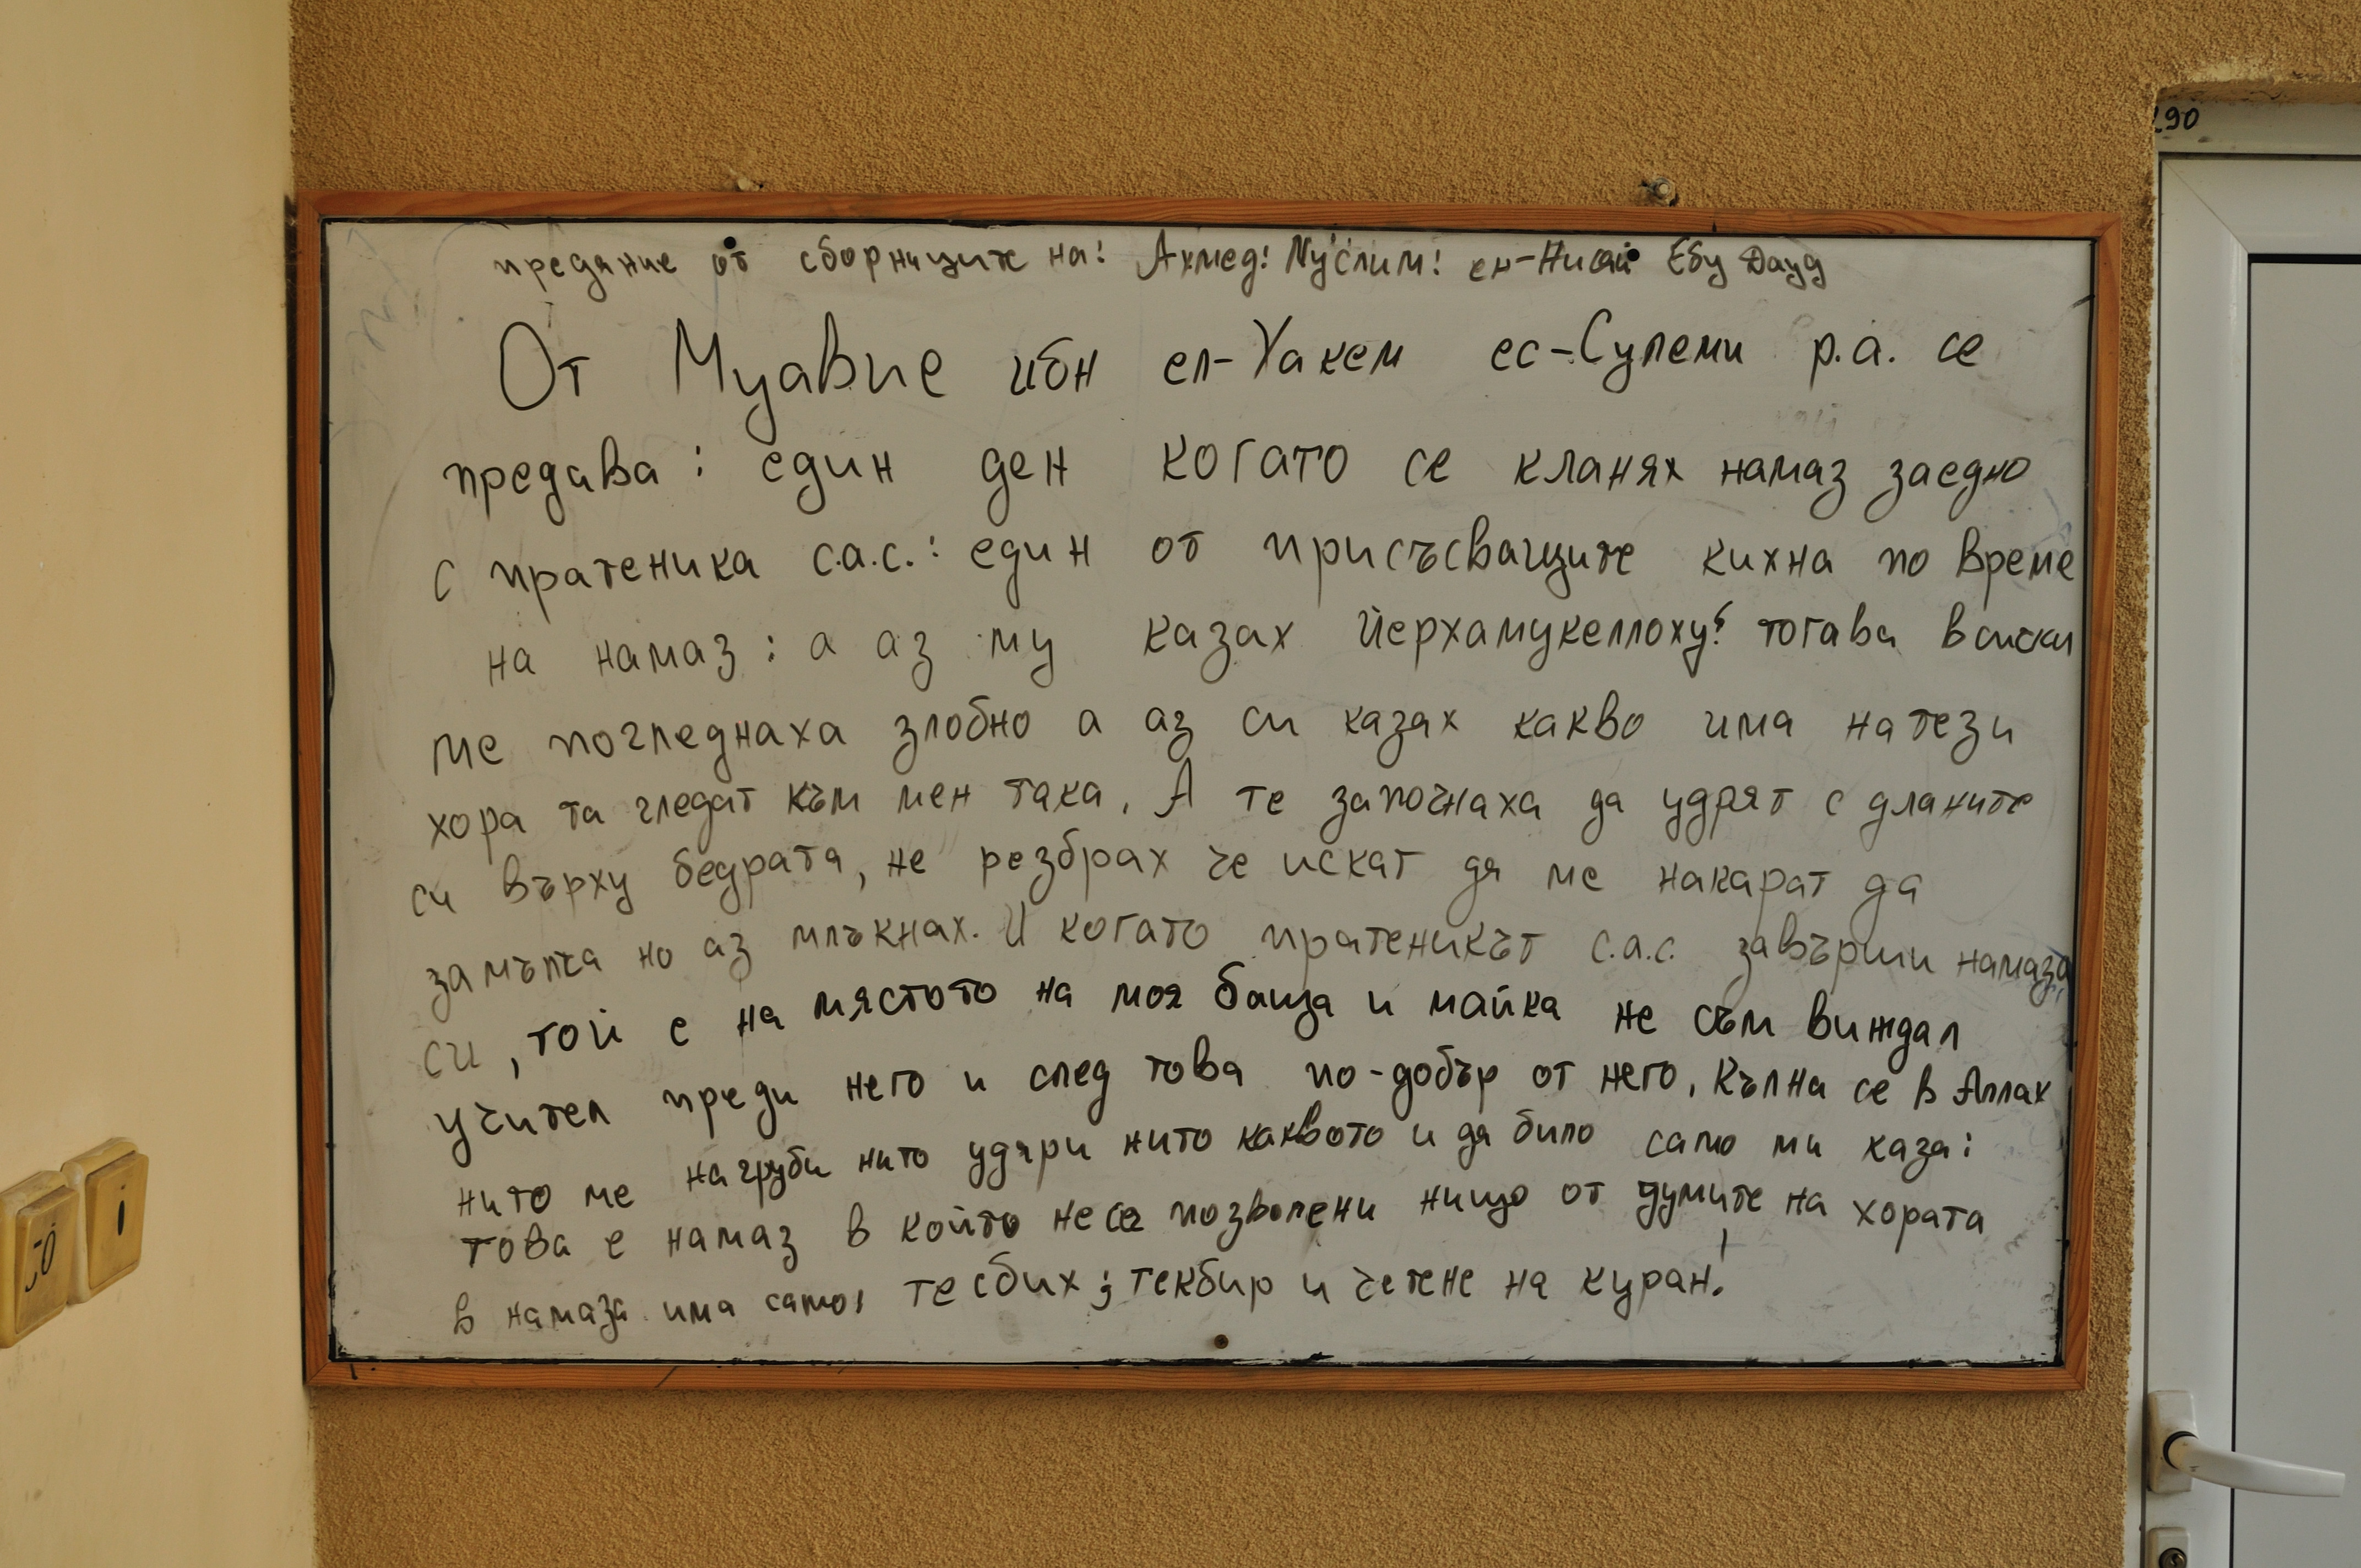 предание от сборниците на: Ахмед! Муслим! ен-Нисаи Ебу Дауд
От Муавие ибн ел-Хакем ес-Сулеми р.а. се
предава: един ден когато се кланях намаз заедно
с пратеника с.а.с.: един от присъсващите кихна по време
на намаз: а аз му казах йерхамукеллоху! тогава всички
ме погледнаха злобно а аз си казах какво има на тези
хора та гледат към мен така. А те започнаха да удрят с дланите
си върху бедрата, не резбрах че искат да ме накарат да
замълча но аз млъкнах. И когато пратеникът с.а.с. завърши намаза
си, той е на мястото на моя баща и майка не съм виждал
учител преди него и след това по-добър от него. Кълна се в Аллах
нито ме нагруби нито удари нито каквото и да било само ми каза:
това е намаз в който не са позволени нищо от думите на хората
в намаза има само: тесбих; текбир и четене на куран!
290